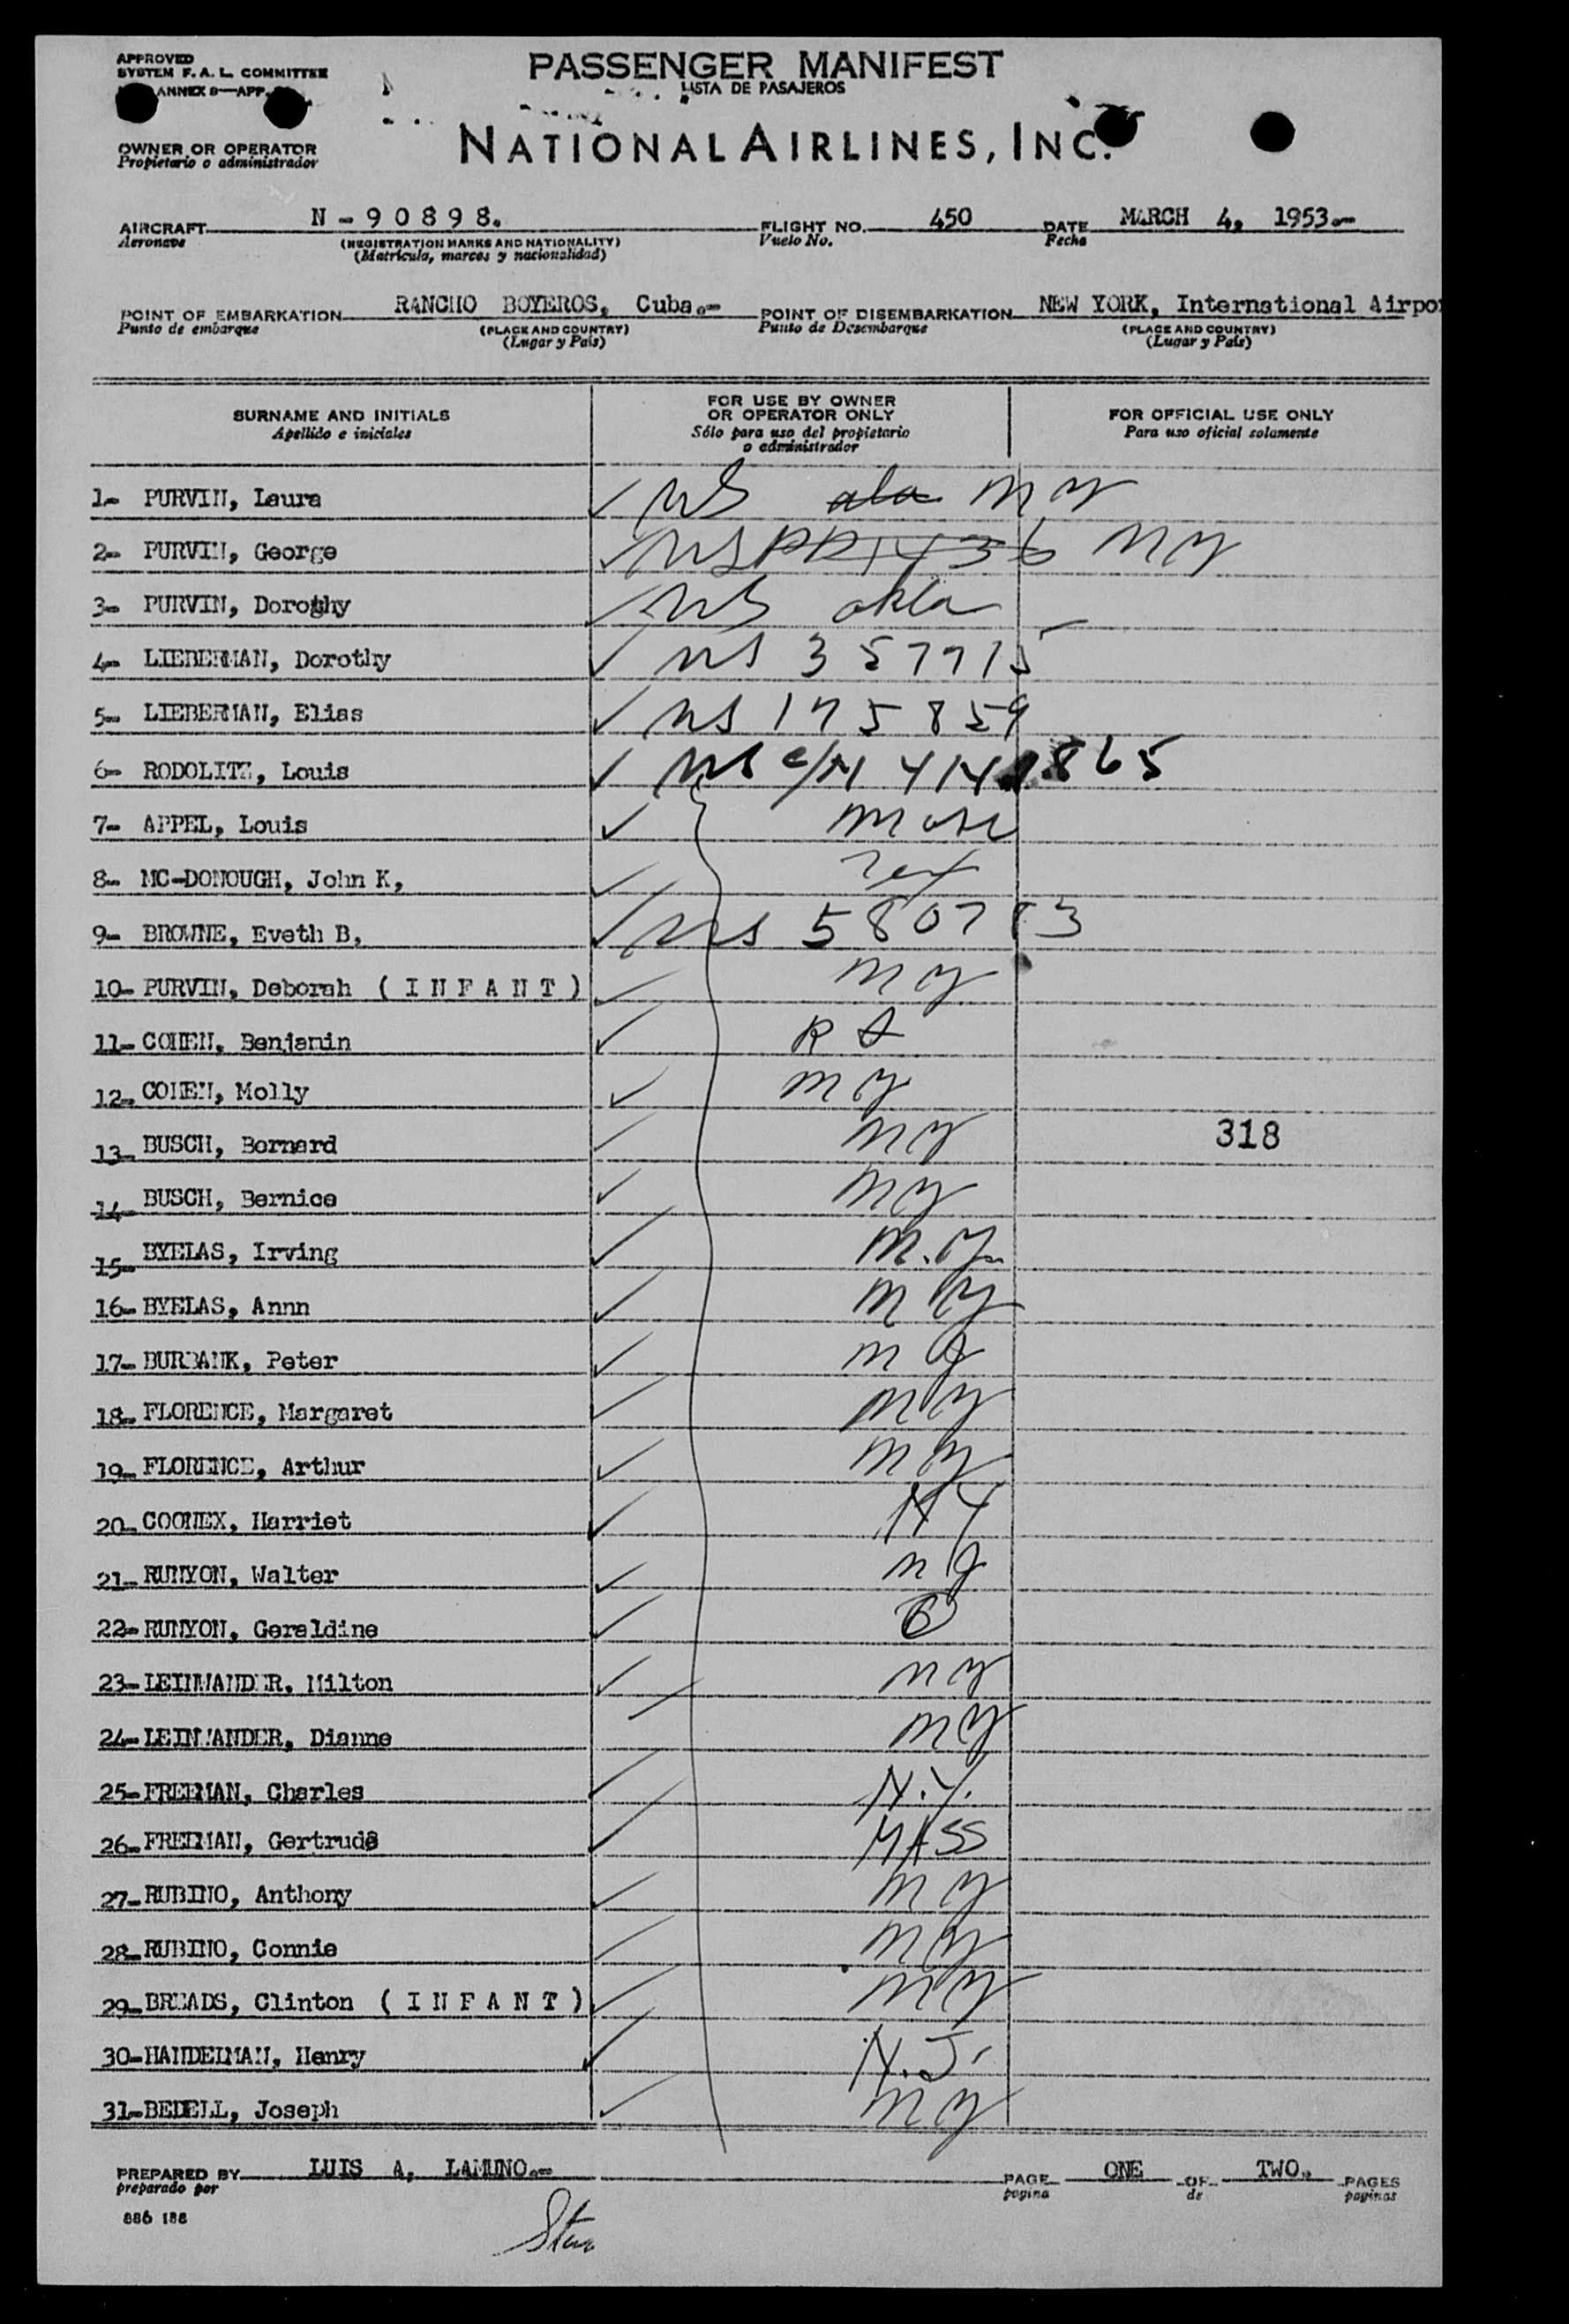 APPROVED
SYSTEM F. A. L. COMMITTEE
ANNEX 9—APP.
PASSENGER MANIFEST
LISTA DE PASAJEROS
OWNER OR OPERATOR
Propietario o administrador
NATIONAL AIRLINES, INC.
AIRCRAFT N - 9 0 8 9 8. FLIGHT NO. 450 DATE MARCH 4, 1953.-
Aeronave (REGISTRATION MARKS AND NATIONALITY) Vuelo No. Fecha
(Matrícula, marcas y nacionalidad)
POINT OF EMBARKATION RANCHO BOYEROS, Cuba.- POINT OF DISEMBARKATION NEW YORK, International Airpor
Punto de embarque (PLACE AND COUNTRY) Punto de Desembarque (PLACE AND COUNTRY)
(Lugar y País) (Lugar y País)
SURNAME AND INITIALS
Apellido e iniciales
FOR USE BY OWNER
OR OPERATOR ONLY
Sólo para uso del propietario
o administrador
FOR OFFICIAL USE ONLY
Para uso oficial solamente
1- PURVIN, Laura NY
2- PURVIN, George NY
3- PURVIN, Dorothy okla
4- LIEBERMAN, Dorothy
5- LIEBERMAN, Elias 175859
6- RODOLITZ, Louis 865
7- APPEL, Louis
8- MC-DONOUGH, John K, Tex
9- BROWNE, Eveth B,
10- PURVIN, Deborah ( I N F A N T ) NY
11- COHEN, Benjamin
12- COHEN, Molly NY
13- BUSCH, Bernard NY 318
14- BUSCH, Bernice NY
15- BYELAS, Irving N.Y.
16- BYELAS, Annn NY
17- BURBANK, Peter
18- FLORENCE, Margaret NY
19- FLORENCE, Arthur NY
20- COONEX, Harriet NY
21- RUNYON, Walter NJ
22- RUNYON, Geraldine
23- LEINWANDER, Milton NY
24- LEINWANDER, Dianne NY
25- FREEMAN, Charles N.Y.
26- FREEMAN, Gertrude MASS
27- RUBINO, Anthony NY
28- RUBINO, Connie NY
29- BREADS, Clinton ( I N F A N T ) NY
30- HANDELMAN, Henry N.J.
31- BEDELL, Joseph NY
PREPARED BY LUIS A, LAMUNO.- PAGE ONE OF TWO. PAGES
preparado por pagina de paginas
886 188